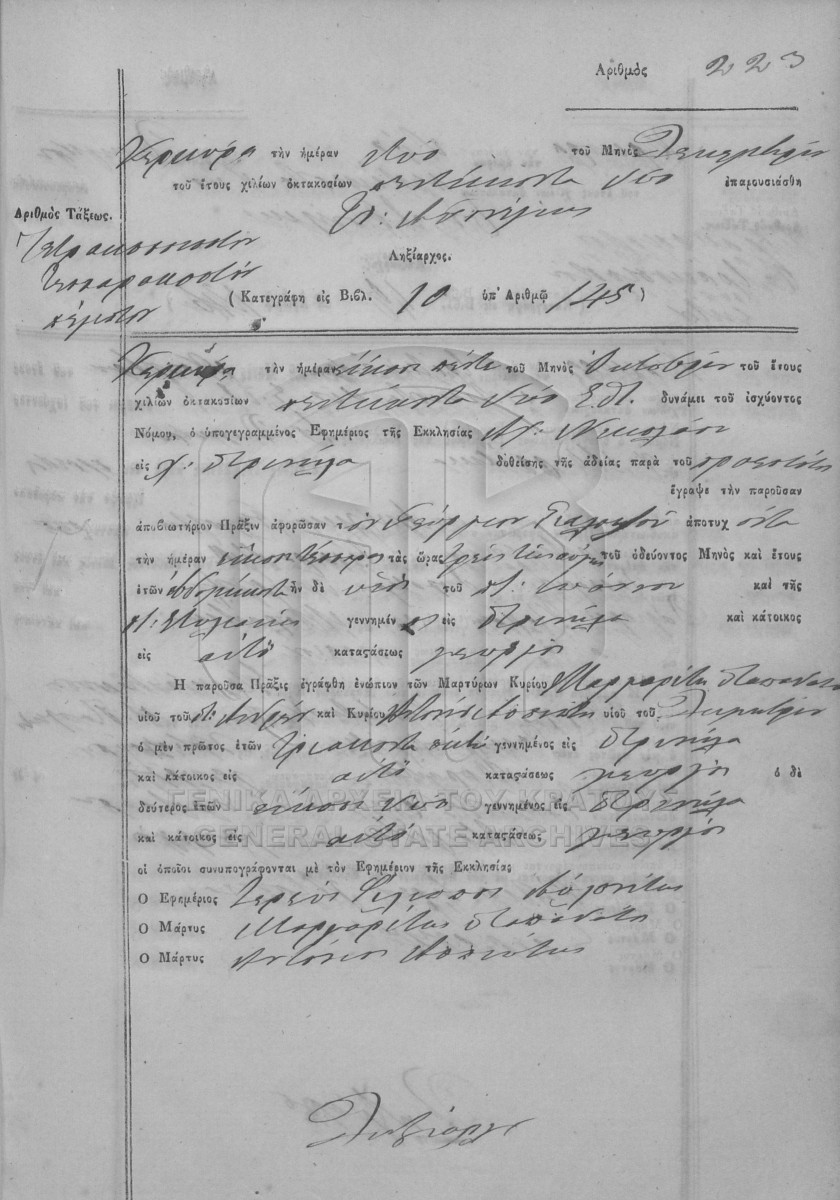 Ἀριθμὸς 223
Κέρκυρα τὴν ἡμέραν δύο τοῦ Μηνὸς Δεκεμβρίου
τοῦ ἔτους χιλίων ὀκτακοσίων πεντήκοντα δύο ἐπαρουσιάσθη
Ἀριθμὸς Τάξεως.
Τετρακοσιοστὸν
τεσσαρακοστὸν
πέμπτον
Ληξίαρχος.
( Κατεγράφη εἰς Βιβλ. 10 ὑπ' Ἀριθμῷ 145 )
Κέρκυρα τὴν ἡμέραν εἴκοσι πέντε τοῦ Μηνὸς Ὀκτωβρίου τοῦ ἔτους
χιλίων ὀκτακοσίων πεντήκοντα δύο δυνάμει τοῦ ἰσχύοντος
Νόμου, ὁ ὑπογεγραμμένος Ἐφημέριος τῆς Ἐκκλησίας Ἁγ: Νικολάου
εἰς χ: Στρινήλα δοθείσης τῆς ἀδείας παρὰ τοῦ προεστῶτος
ἔγραψε τὴν παροῦσαν
ἀποβιωτήριον Πρᾶξιν ἀφορῶσαν τὸν Γεώργιον ἀποτυχόντα
τὴν ἡμέραν εἴκοσι τέσσαρες τὰς ὥρας τρεῖς τοῦ ὁδεύοντος Μηνὸς καὶ ἔτους
ἐτῶν ἑβδομήκοντα ἦν δὲ υἱὸς τοῦ π: Ἰωάννου καὶ τῆς
π: Στυλιανῆς γεννημένος εἰς Στρινήλα καὶ κάτοικος
εἰς αὐτὸ καταςάσεως γεωργὸς
Ἡ παροῦσα Πρᾶξις ἐγράφθη ἐνώπιον τῶν Μαρτύρων Κυρίου Μαργαρίτη
υἱοῦ τοῦ π: Ἀνδρέου καὶ Κυρίου υἱοῦ τοῦ Δημητρίου
ὁ μὲν πρῶτος ἐτῶν τριάκοντα ὀκτὼ γεννημένος εἰς Στρινήλα
καὶ κάτοικος εἰς αὐτὸ καταςάσεως γεωργὸς ὁ δὲ
δεύτερος ἐτῶν εἴκοσι δύο γεννημένος εἰς Στρινήλα
καὶ κάτοικος εἰς αὐτὸ καταςάσεως γεωργὸς
οἱ ὁποῖοι συνυπογράφονται μὲ τὸν Ἐφημέριον τῆς Ἐκκλησίας
Ὁ Ἐφημέριος Ἱερεὺς Φίλιππος
Ὁ Μάρτυς Μαργαρίτης
Ὁ Μάρτυς Ἀντώνιος
ΓΕΝΙΚΑ ΑΡΧΕΙΑ ΤΟΥ ΚΡΑΤΟΥΣ
GENERAL STATE ARCHIVES